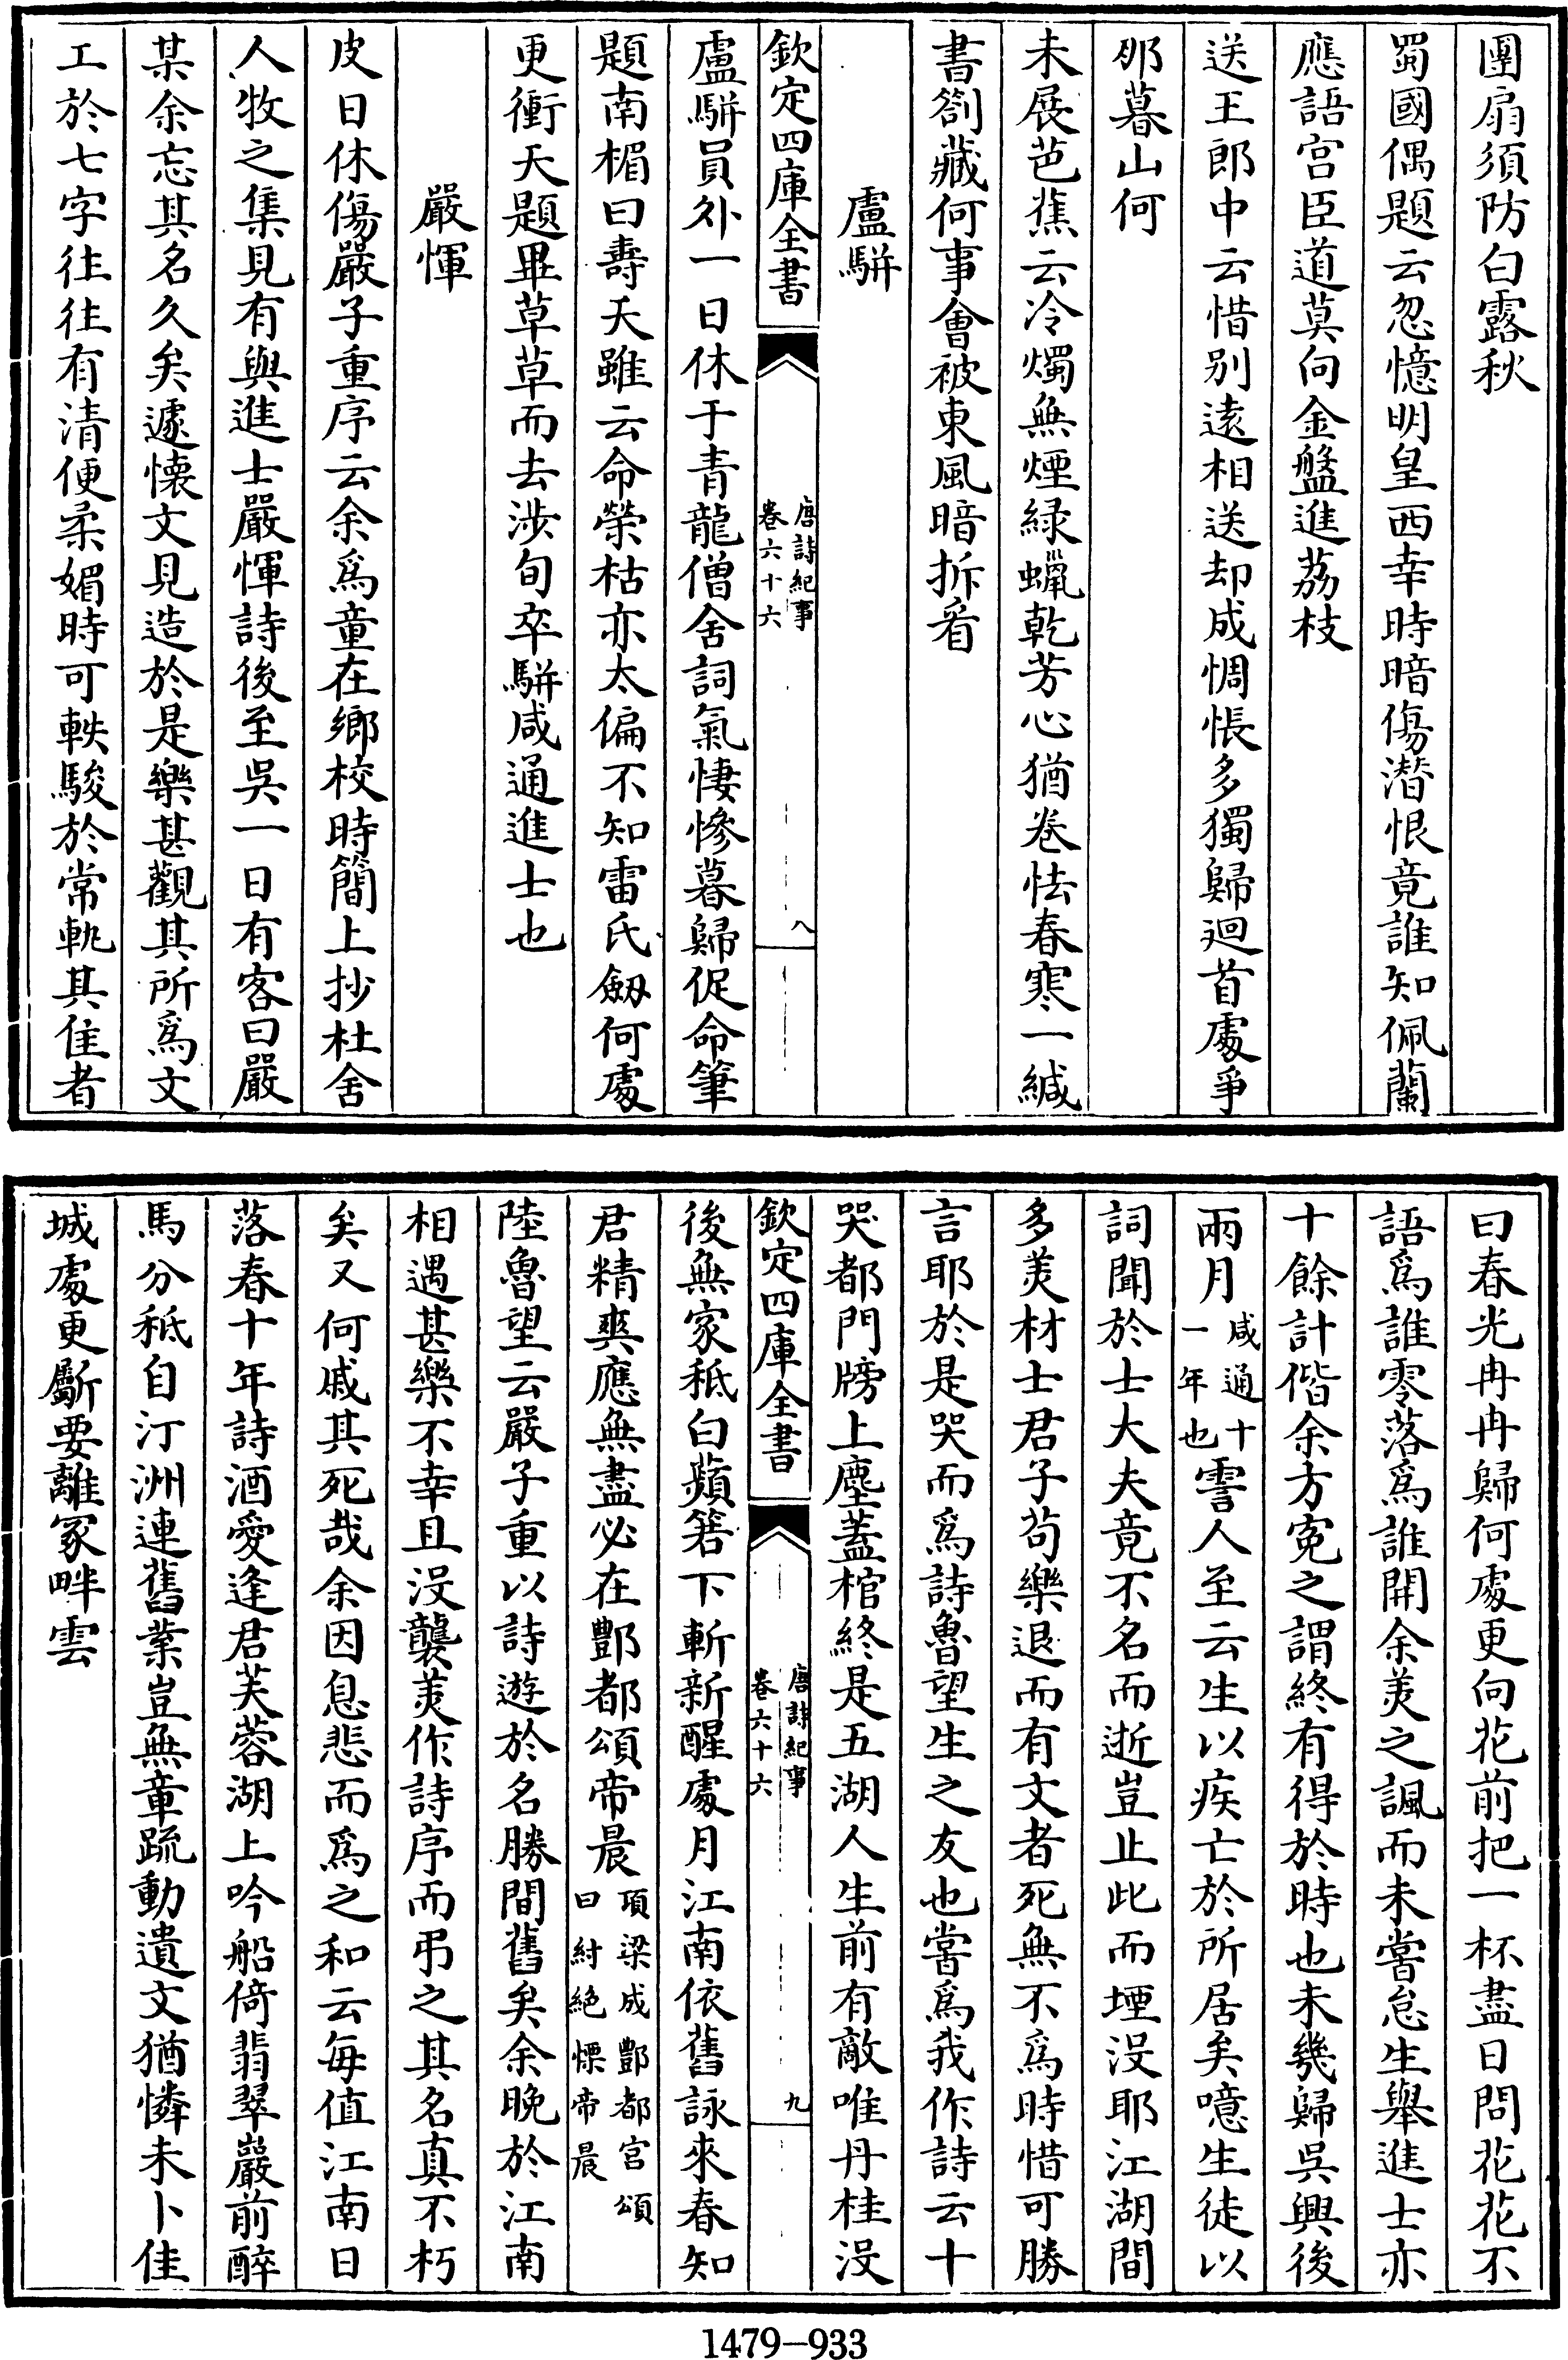 團扇須防白露秋
蜀國偶題云忽憶明皇西幸時暗傷潛恨竟誰知佩蘭
應語宫臣道莫向金盤進荔枝
送王郎中云惜别逺相送却成惆悵多獨歸迴首處爭
那暮山何
未展芭蕉云冷燭無煙緑蠟乾芳心猶卷怯春寒一緘
書劄藏何事㑹被東風暗拆看
盧駢
欽定四庫全書
唐詩紀事
卷六十六
八
盧駢員外一日休于青龍僧舍詞氣悽慘暮歸促命筆
題南楣曰壽夭雖云命榮枯亦太偏不知雷氏劔何處
更衝天題畢草草而去涉旬卒駢咸通進士也
嚴惲
皮日休傷嚴子重序云余爲童在鄉校時簡上抄杜舍
人牧之集見有與進士嚴惲詩後至吳一日有客曰嚴
某余忘其名久矣遽懷文見造於是樂甚觀其所爲文
工於七字往往有清便柔媚時可軼駿於常軌其佳者
曰春光冉冉歸何處更向花前把一杯盡日問花花不
語爲誰零落爲誰開余美之諷而未嘗怠生舉進士亦
十餘計偕余方寃之謂終有得於時也未幾歸吳興後
兩月咸通十一年也霅人至云生以疾亡於所居矣噫生徒以
詞聞於士大夫竟不名而逝豈止此而堙没耶江湖間
多美材士君子苟樂退而有文者死無不爲時惜可勝
言耶於是哭而爲詩魯望生之友也當爲我作詩云十
哭都門牓上塵蓋棺終是五湖人生前有敵唯丹桂没
欽定四庫全書
唐詩紀事
卷六十六
九
後無家秪白蘋箬下斬新醒處月江南依舊詠來春知
君精爽應無盡必在酆都頌帝晨項梁成酆都宫頌曰紂絶慄帝晨
陸魯望云嚴子重以詩遊於名勝間舊矣余晩於江南
相遇甚樂不幸且没襲美作詩序而弔之其名真不朽
矣又何戚其死哉余因息悲而爲之和云每值江南日
落春十年詩酒愛逢君芙蓉湖上吟船倚翡翠巖前醉
馬分秪自汀洲連舊業豈無章疏動遺文猶憐未卜佳
城處更斸要離冢畔雲
1479-933